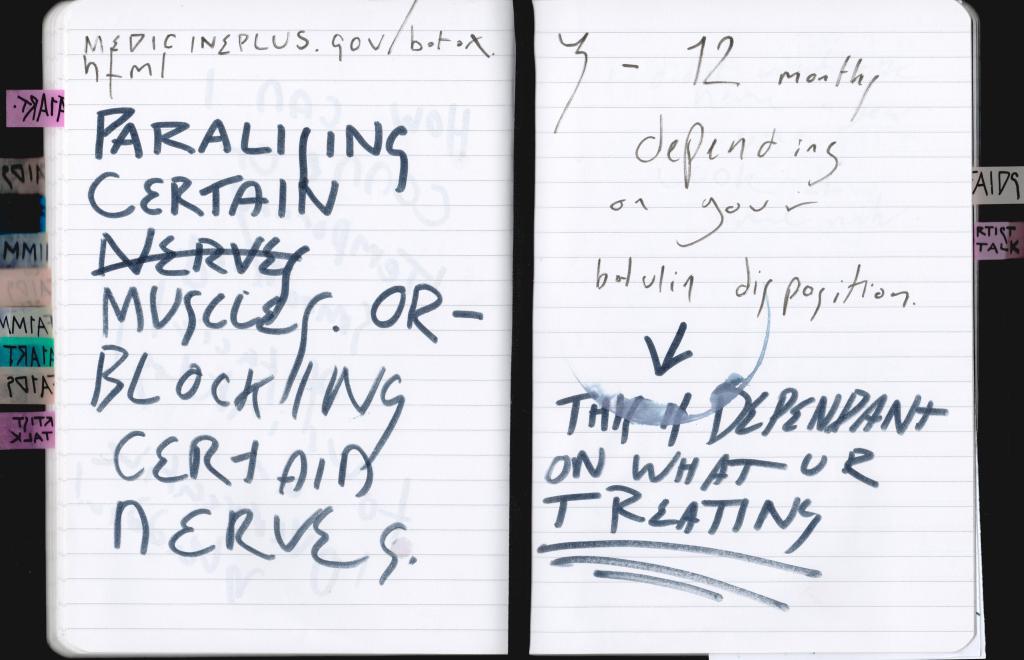 MEDICINEPLUS.gov/botox.
html
PARALISING
CERTAIN
NERVES
MUSCLES. OR-
BLOCKING
CERTAIN
NERVES.
3 - 12 months
depending
on your
botulin disposition.
THIS IS DEPENDANT
ON WHAT UR
TREATING
ARTIST
TALK